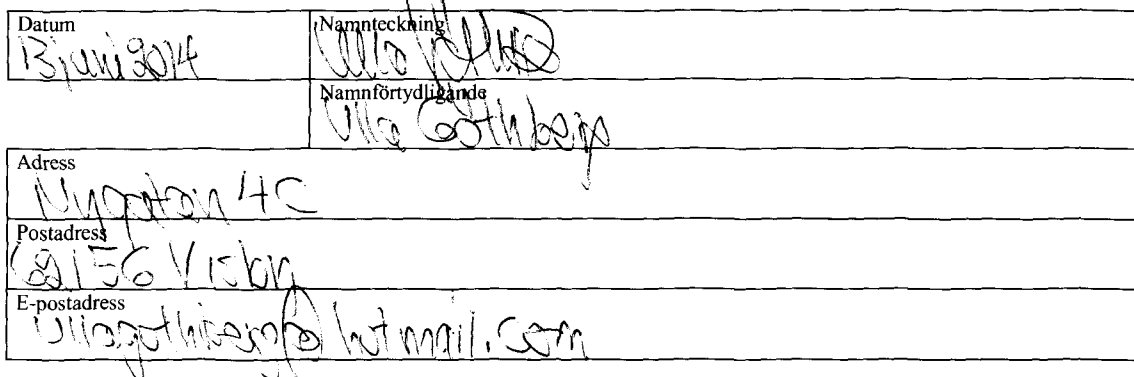 Datum Namnteckning
13 juni 2014 Ulla
Namnförtydligande
Ulla Göthberg
Adress
Nygatan 4C
Postadress
62156 Visby
E-postadress
ullagothberg@hotmail.com